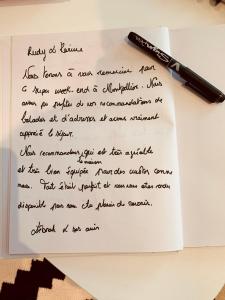 Rudy & Karine
Nous tenons à vous remercier pour
ce super week-end à Montpellier. Nous
avons pu profiter de vos recommandations de
balades et d'adresses et avons vraiment
apprécié le séjour.
Nous recommandons, qui est très agréable
la maison
et très bien équipée pour des
Tout était parfait et vous vous êtes rendus
disponible pour nous. Au plaisir de revenir.
& ses amis